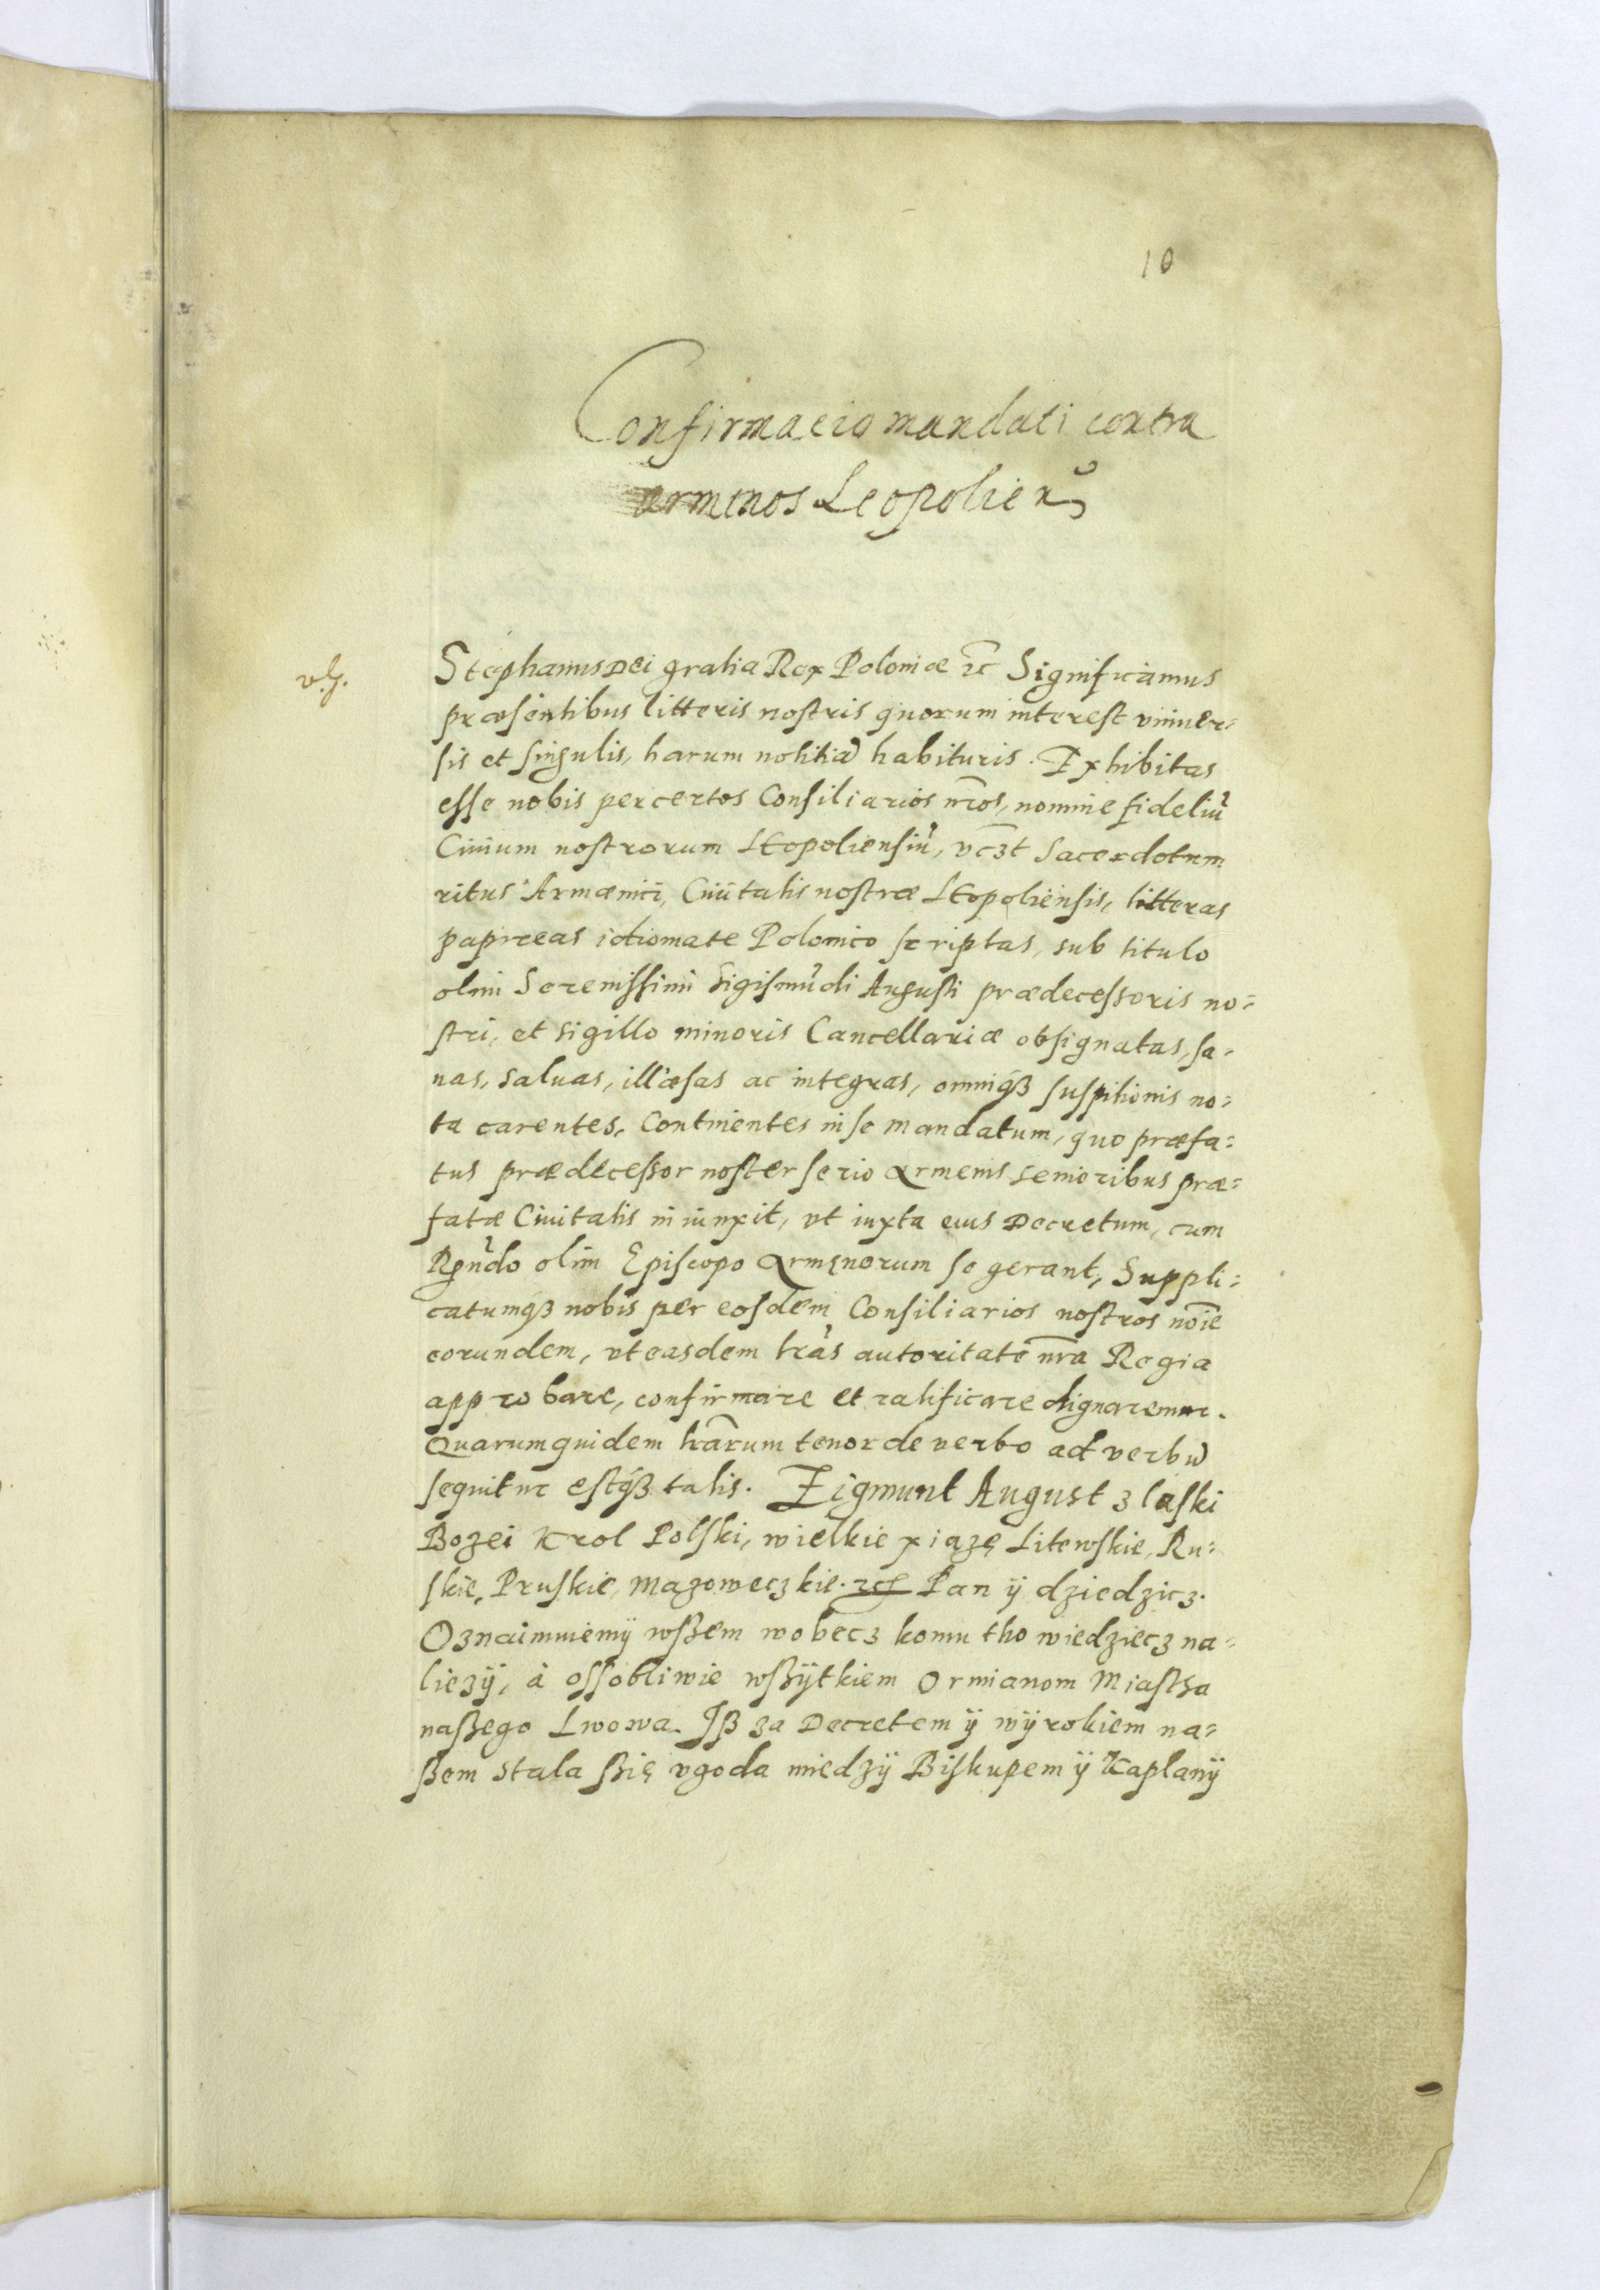 10
Confirmacio mandati contra
armenos Leopolien̄
Stephanus Dei gratia Rex Poloniæ ꝛc̄ Significamus
præsentibus litteris nostris quorum interest vniuer-
sis et singulis, harum notitiā habituris. Exhibitas
esse nobis per certos Consiliarios nr̄os, nomine fideliū
Ciuium nostrorum LEopoliensiū, vcꝫt Sacerdotum
ritus Armænici, Ciuitatis nostræ LEopoliensis, litteras
papireas idiomate Polonico scriptas, sub titulo
olim Serenissimi Sigismūdi Augusti prædecessoris no-
stri, et sigillo minoris Cancellariæ obsignatas, sa-
nas, saluas, illæsas ac integras, omniqꝫ suspitionis no-
ta carentes, Continentes in se mandatum, quo præfa-
tus prædecessor noster serio Armenis senioribus præ-
fatæ Ciuitatis iniunxit, vt iuxta eius Decretum, cum
Rn̄do olim Episcopo Armenorum se gerant, Suppli-
catumqꝫ nobis per eosdem Consiliarios nostros noīe
eorundem, vt easdem lr̄as autoritate nr̄a Regia
approbare, confirmare et ratificare dignaremur.
Quarum quidem lr̄arum tenor de verbo ad verbū
sequitur estqꝫ talis. Zigmunt August z laski
Bozei Krol Polski, wielkie xiązę Litewskie, Ru-
skie, Pruskie, Mazoweczkie. ꝛc̄ Pan ÿ dziedzicz.
Oznaimuiemÿ wßem wobecz komu tho wiedziecz na-
liezÿ, à ossobliwie wßÿtkiem Ormianom Miastha
naßego Lwowa. Iß za Decretem ÿ wÿrokiem na-
ßem stala ßię vgoda miedzÿ Biskupem ÿ Kaplanÿ